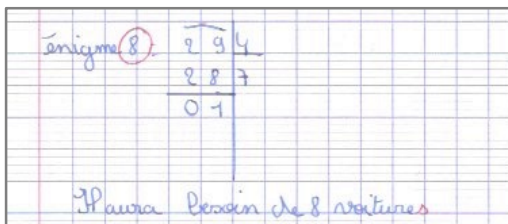 énigme 8 : 2 9 4
2 8 7
0 1
Il aura besoin de 8 voitures